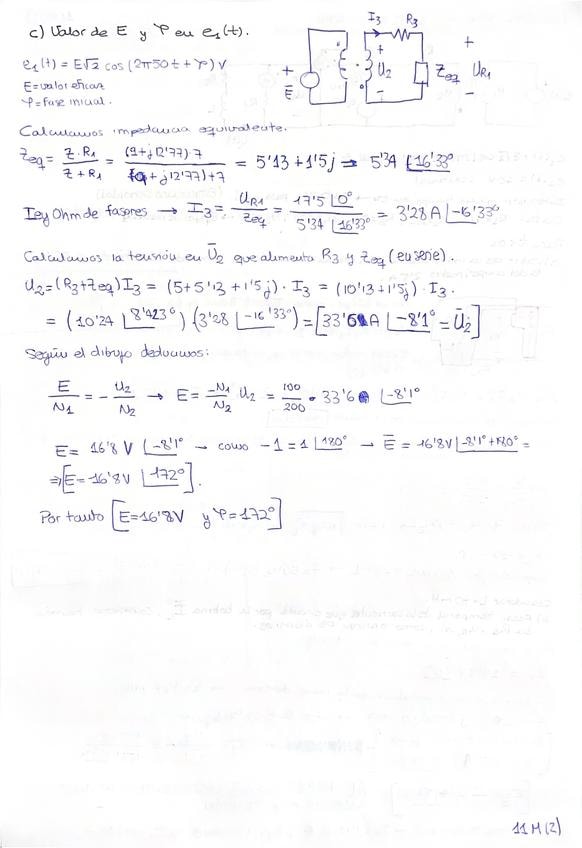 c) Valor de E y φ en e₁(t).
I₃ R₃
e₁(t) = E√2 cos (2π50t + φ) V
+ Ē + U₂ - Zeq + U_R1 -
E = valor eficaz
φ = fase inicial.
Calculamos impedancia equivalente.
Zeq = Z·R₁ / Z + R₁ = (9+j12'77)·7 / (9+j12'77)+7 = 5'13 + 1'5j → 5'34 ∠16'33º
Ley Ohm de fasores → I₃ = U_R1 / Zeq = 17'5 ∠0º / 5'34 ∠16'33º = 3'28 A ∠-16'33º
Calculamos la tensión en Ū₂ que alimenta R₃ y Zeq (en serie).
U₂ = (R₃+Zeq) I₃ = (5+5'13+1'5j) · I₃ = (10'13+1'5j) · I₃.
= (10'24 ∠8'423º) (3'28 ∠-16'33º) = [33'6 A ∠-8'1º = Ū₂]
Según el dibujo deducimos:
E / N₁ = - U₂ / N₂ → E = -N₁ / N₂ U₂ = 100 / 200 · 33'6 ∠-8'1º
E = 16'8 V ∠-8'1º → como -1 = 1 ∠180º → Ē = 16'8V ∠-8'1º+180º =
⇒ [E = 16'8V ∠172º].
Por tanto [E = 16'8V y φ = 172º]
11 M (2)